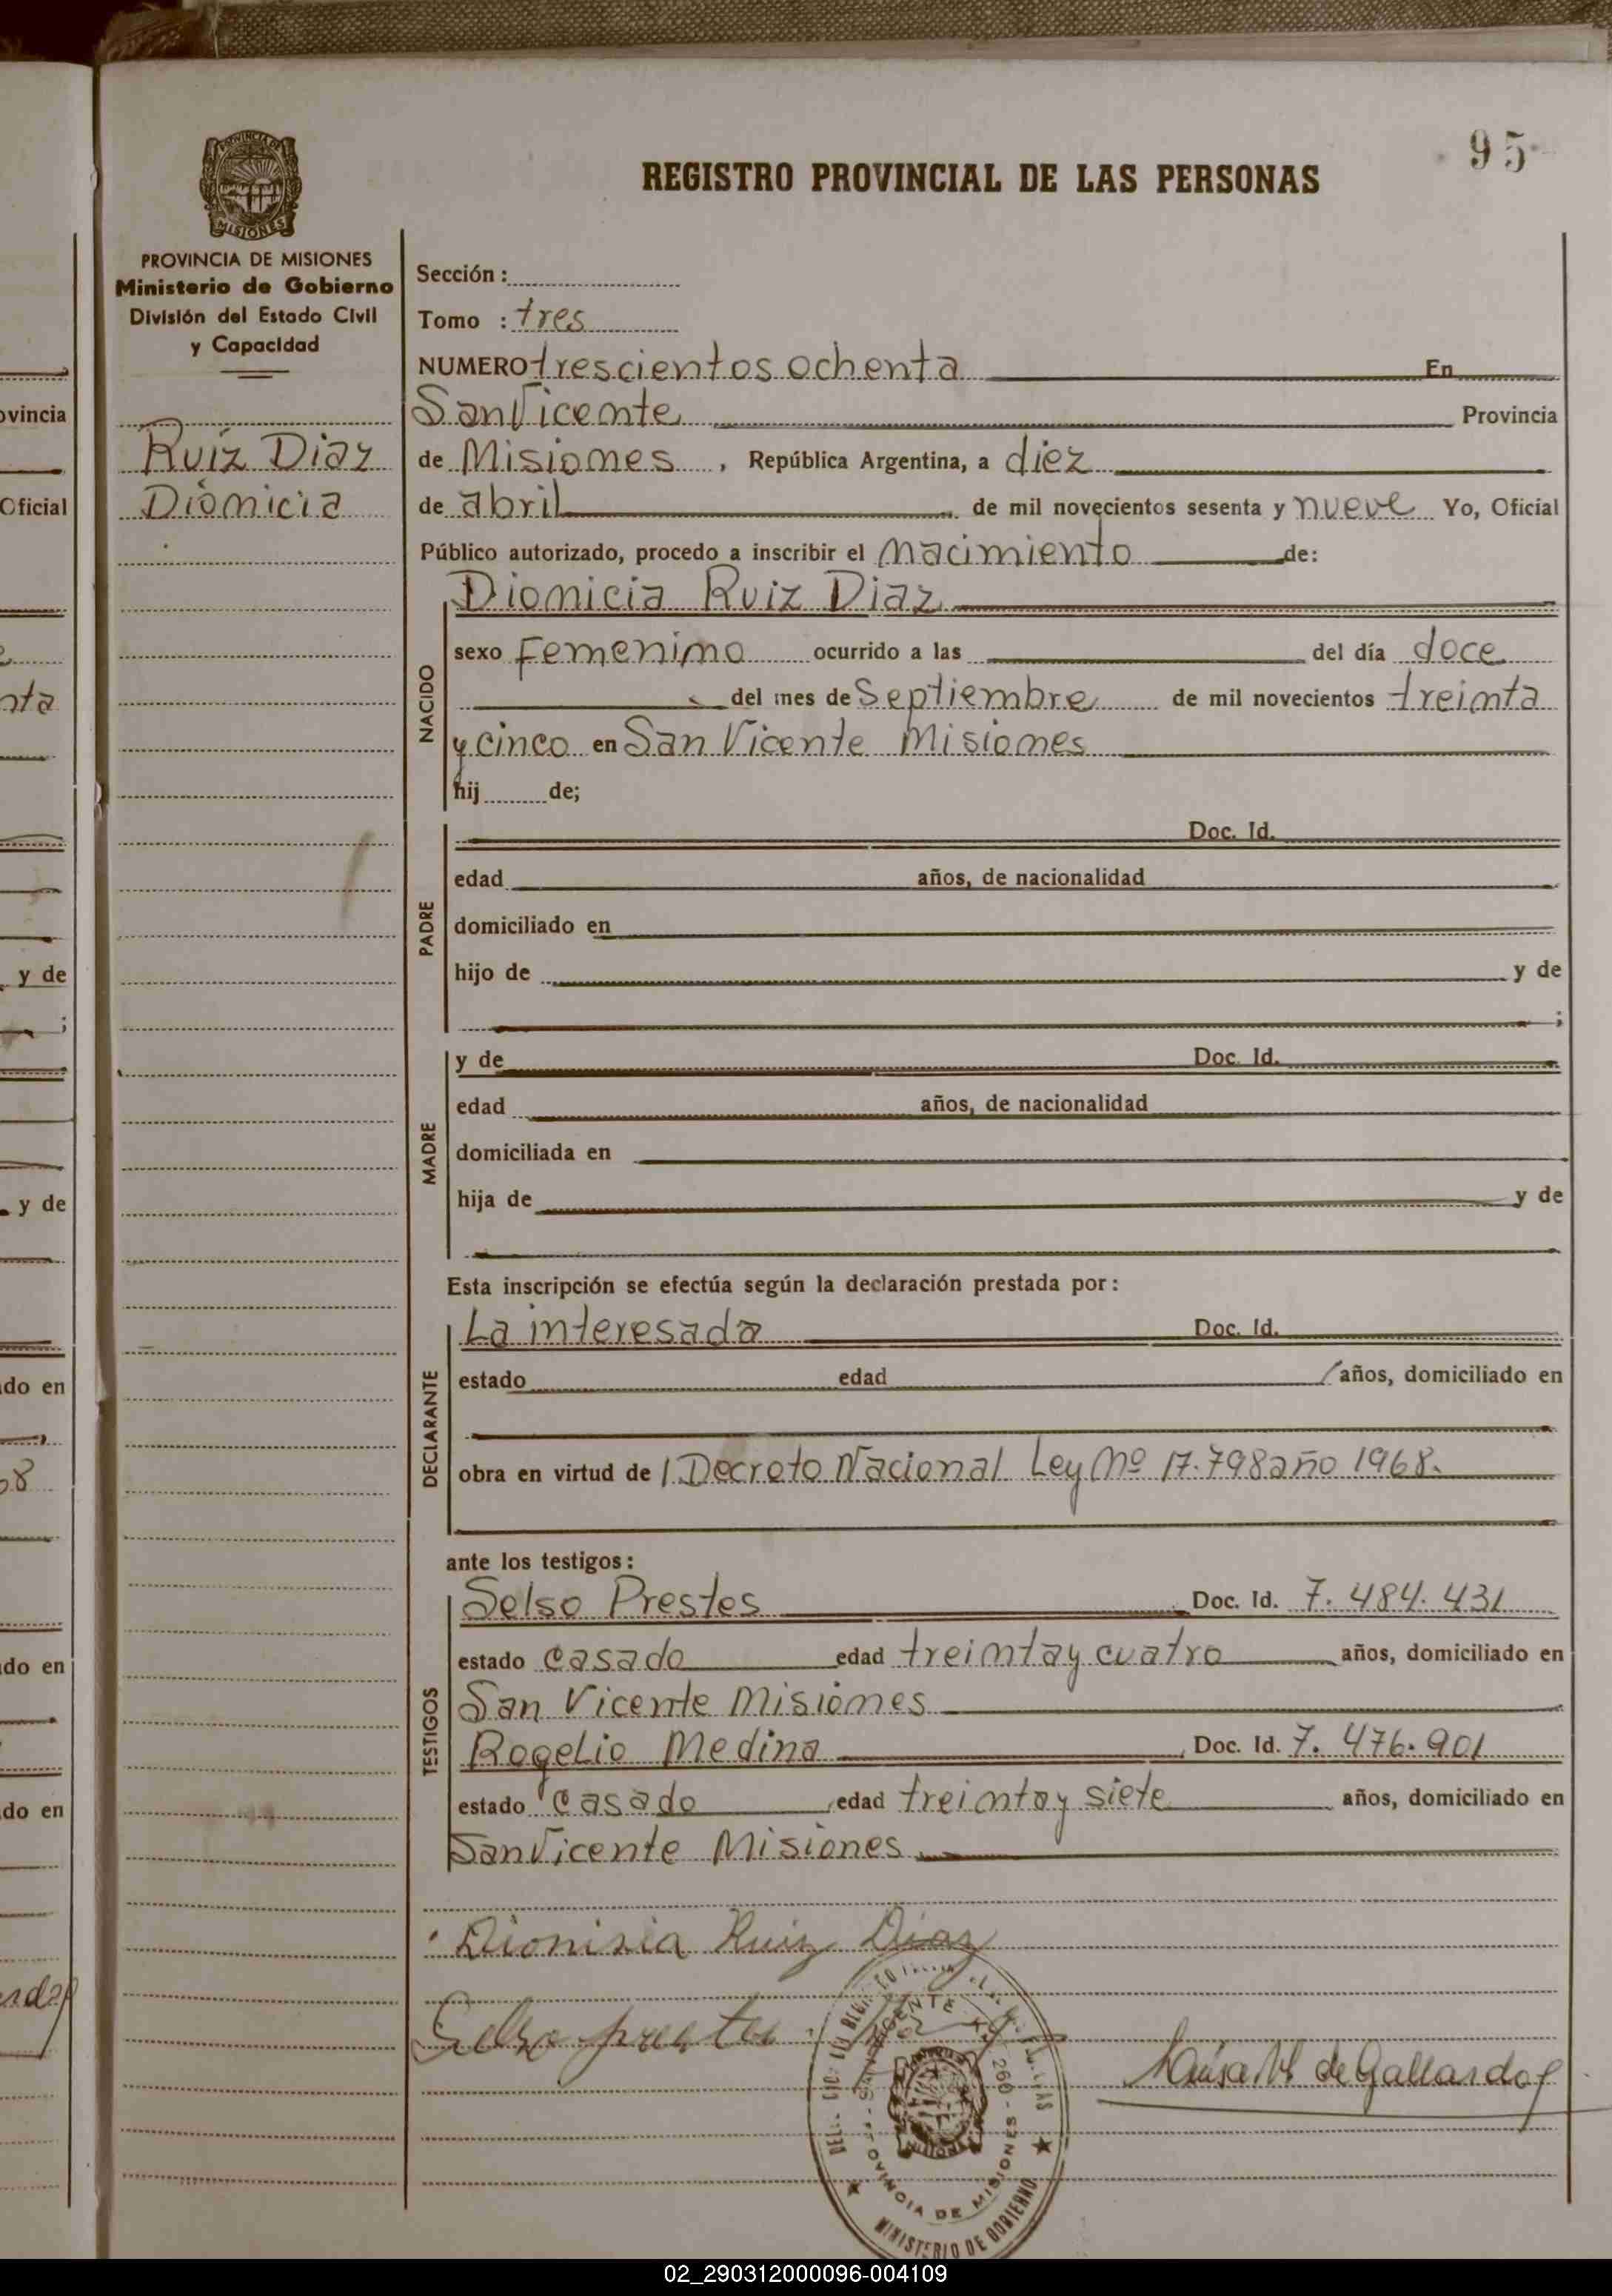 95
REGISTRO PROVINCIAL DE LAS PERSONAS
PROVINCIA DE
MISIONES
PROVINCIA DE MISIONES
Ministerio de Gobierno
División del Estado Civil
y Capacidad
Ruíz Diaz
Dionicia
Sección :
Tomo : tres
NUMERO trescientos ochenta En
San Vicente Provincia
de Misiones, República Argentina, a diez
de abril de mil novecientos sesenta y nueve Yo, Oficial
Público autorizado, procedo a inscribir el nacimiento de:
Dionicia Ruiz Diaz
NACIDO
sexo Femenino ocurrido a las del día doce
del mes de Septiembre de mil novecientos treinta
y cinco en San Vicente Misiones
hij de;
PADRE
Doc. Id.
edad años, de nacionalidad
domiciliado en
hijo de y de
;
MADRE
y de Doc. Id.
edad años, de nacionalidad
domiciliada en
hija de y de
Esta inscripción se efectúa según la declaración prestada por:
DECLARANTE
La interesada Doc. Id.
estado edad años, domiciliado en
obra en virtud de l Decreto Nacional Ley Nº 17.798 año 1968.
ante los testigos:
TESTIGOS
Selso Prestes Doc. Id. 7.484.431
estado casado edad treinta y cuatro años, domiciliado en
San Vicente Misiones
Rogelio Medina Doc. Id. 7.476.901
estado casado edad treinta y siete años, domiciliado en
San Vicente Misiones
Dionisia Ruiz Diaz
Selso prestes
de Gallardo
260
PROVINCIA DE MISIONES
MINISTERIO DE GOBIERNO
ovincia
Oficial
nta
y de
;
y de
do en
68
do en
do en
02_290312000096-004109